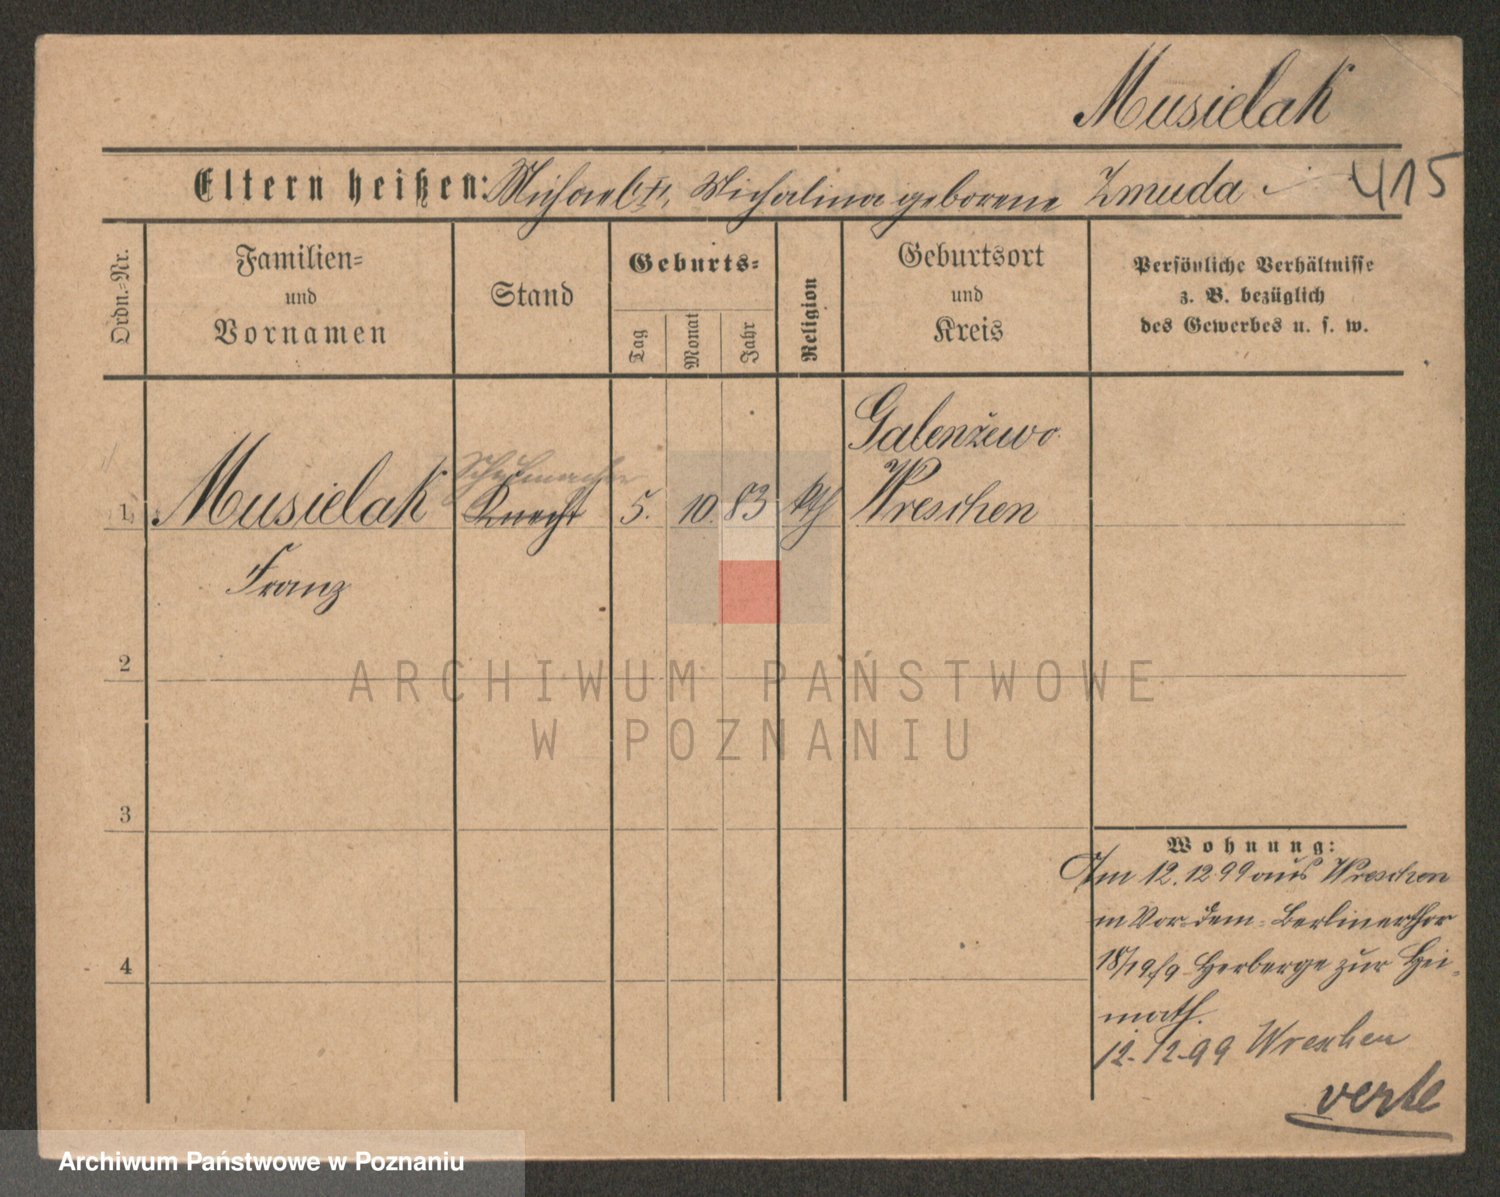 Musielak
Eltern heißen: Michael †, Michalina geborene Zmuda
415
Ordn.-Nr.
Familien-
und
Vornamen
Stand
Geburts-
Tag
Monat
Jahr
Religion
Geburtsort
und
Kreis
Persönliche Verhältnisse
z. B. bezüglich
des Gewerbes u. s. w.
Schuhmacher
1 Musielak Knecht 5. 10. 83 kth Galenzewo
Wreschen
Franz
2
3
4
ARCHIWUM PAŃSTWOWE
W POZNANIU
Wohnung:
Am 12.12.99 aus Wreschen
in Vor dem Berlinerthor
Herberge zur Hei-
math.
12.12.99 Wreschen
verte
Archiwum Państwowe w Poznaniu